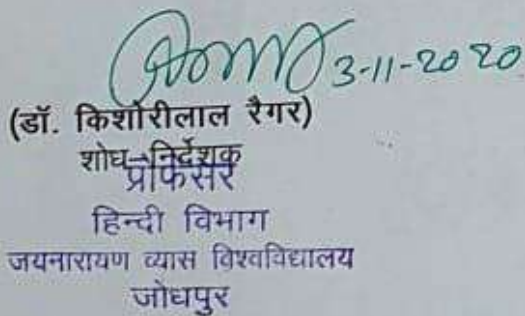 3-11-2020
(डॉ. किशोरीलाल रैगर)
शोध-निर्देशक
प्रोफेसर
हिन्दी विभाग
जयनारायण व्यास विश्वविद्यालय
जोधपुर